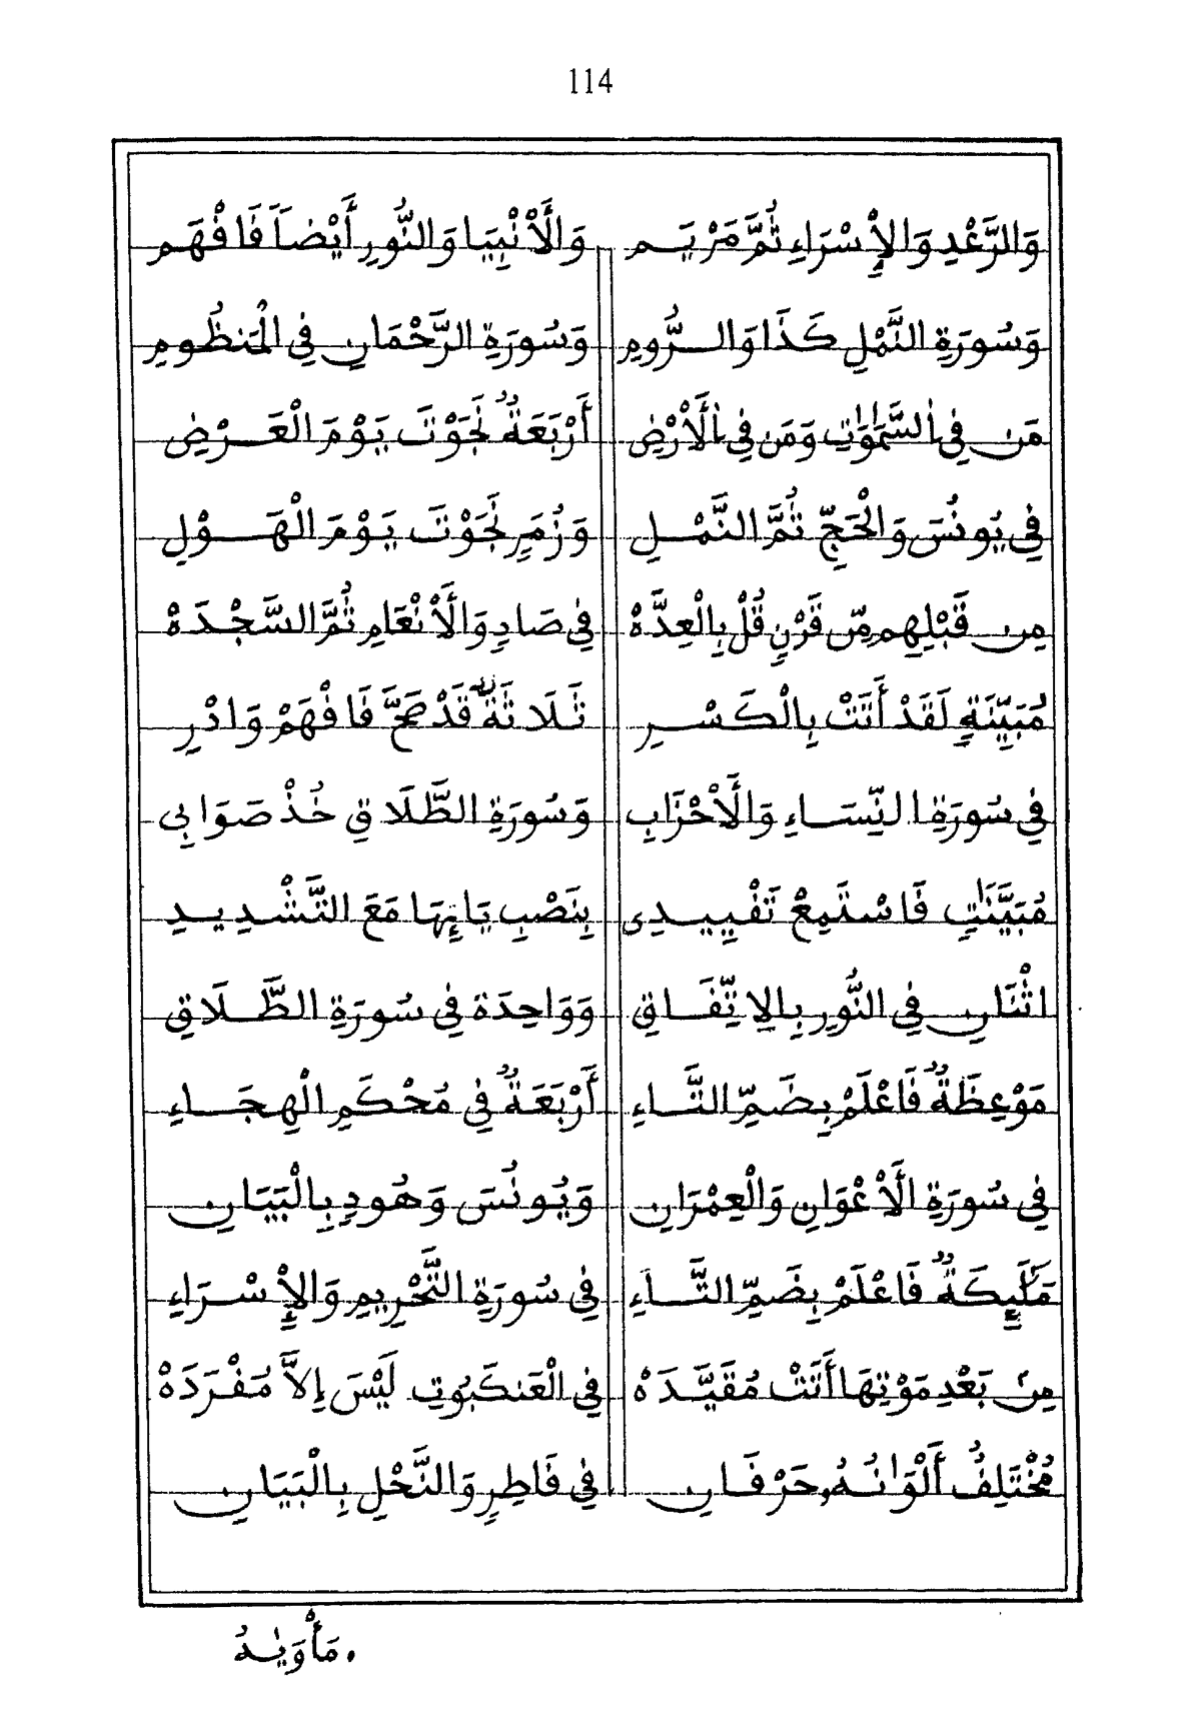 114
وَالرَّعْدِ وَالْإِسْرَاءِ ثُمَّ مَرْيَم وَالْأَنْبِيَا وَالنُّورِ أَيْضاً فَافْهَم
وَسُورَةِ النَّمْلِ كَذَا وَالرُّومِ وَسُورَةِ الرَّحْمَانِ فِي الْمَنظُومِ
مَن فِي اٰلسَّمَٰوَٰتِ وَمَن فِي اٰلْأَرْضِ أَرْبَعَةٌ نَجَوْتَ يَوْمَ الْعَرْضِ
فِي يُونُسَ وَالْحَجِّ ثُمَّ النَّمْلِ وَزُمَرٍ نَجَوْتَ يَوْمَ الْهَوْلِ
مِن قَبْلِهِم مِّن قَرْنٍ قُلْ بِالْعِدَّهْ فِي صَادٍ وَالْأَنْعَامِ ثُمَّ السَّجْدَهْ
مُبَيِّنَةٍ لَقَدْ أَتَتْ بِالْكَسْرِ ثَلَاثَةٌ قَدْ صَحَّ فَافْهَمْ وَادْرِ
فِي سُورَةِ النِّسَاءِ وَالْأَحْزَابِ وَسُورَةِ الطَّلَاقِ خُذْ صَوَابِي
مُبَيَّنَٰتٍ فَاسْتَمِعْ تَفْيِيدِي بِنَصْبِ يَائِهَا مَعَ التَّشْدِيدِ
اثْنَانِ فِي النُّورِ بِالِاتِّفَاقِ وَوَاحِدَة فِي سُورَةِ الطَّلَاقِ
مَوْعِظَةٌ فَاعْلَمْ بِضَمِّ التَّاءِ أَرْبَعَةٌ فِي مُحْكَمِ الْهِجَاءِ
فِي سُورَةِ الْأَعْوَانِ وَالْعِمْرَانِ وَيُونُسَ وَهُودٍ بِالْبَيَانِ
مَلَٰٓئِكَةٌ فَاعْلَمْ بِضَمِّ التَّاءِ فِي سُورَةِ التَّحْرِيمِ وَالْإِسْرَاءِ
مِنۢ بَعْدِ مَوْتِهَا أَتَتْ مُقَيَّدَهْ فِي الْعَنكَبُوتِ لَيْسَ إِلاَّ مُفْرَدَهْ
مُّخْتَلِفٌ أَلْوَٰنُهُۥ حَرْفَانِ فِي فَاطِرٍ وَالنَّحْلِ بِالْبَيَانِ
. مَأْوَيٰهُ